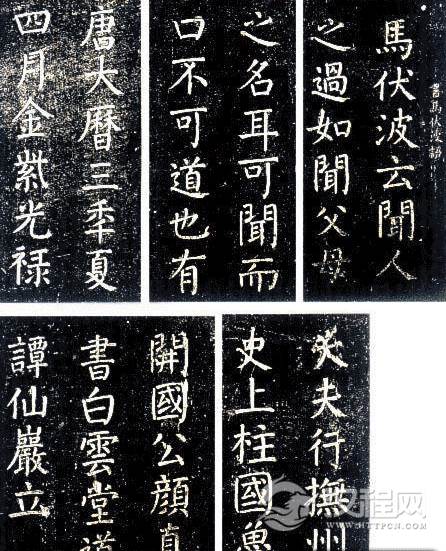 書馬伏波語
馬伏波云聞人
之過如聞父母
之名耳可聞而
口不可道也有
唐大曆三秊夏
四月金紫光禄
大夫行撫州
史上柱國魯
開國公顔真
書白雲堂道
譚仙巖立
汉程网
HTTPCN.COM